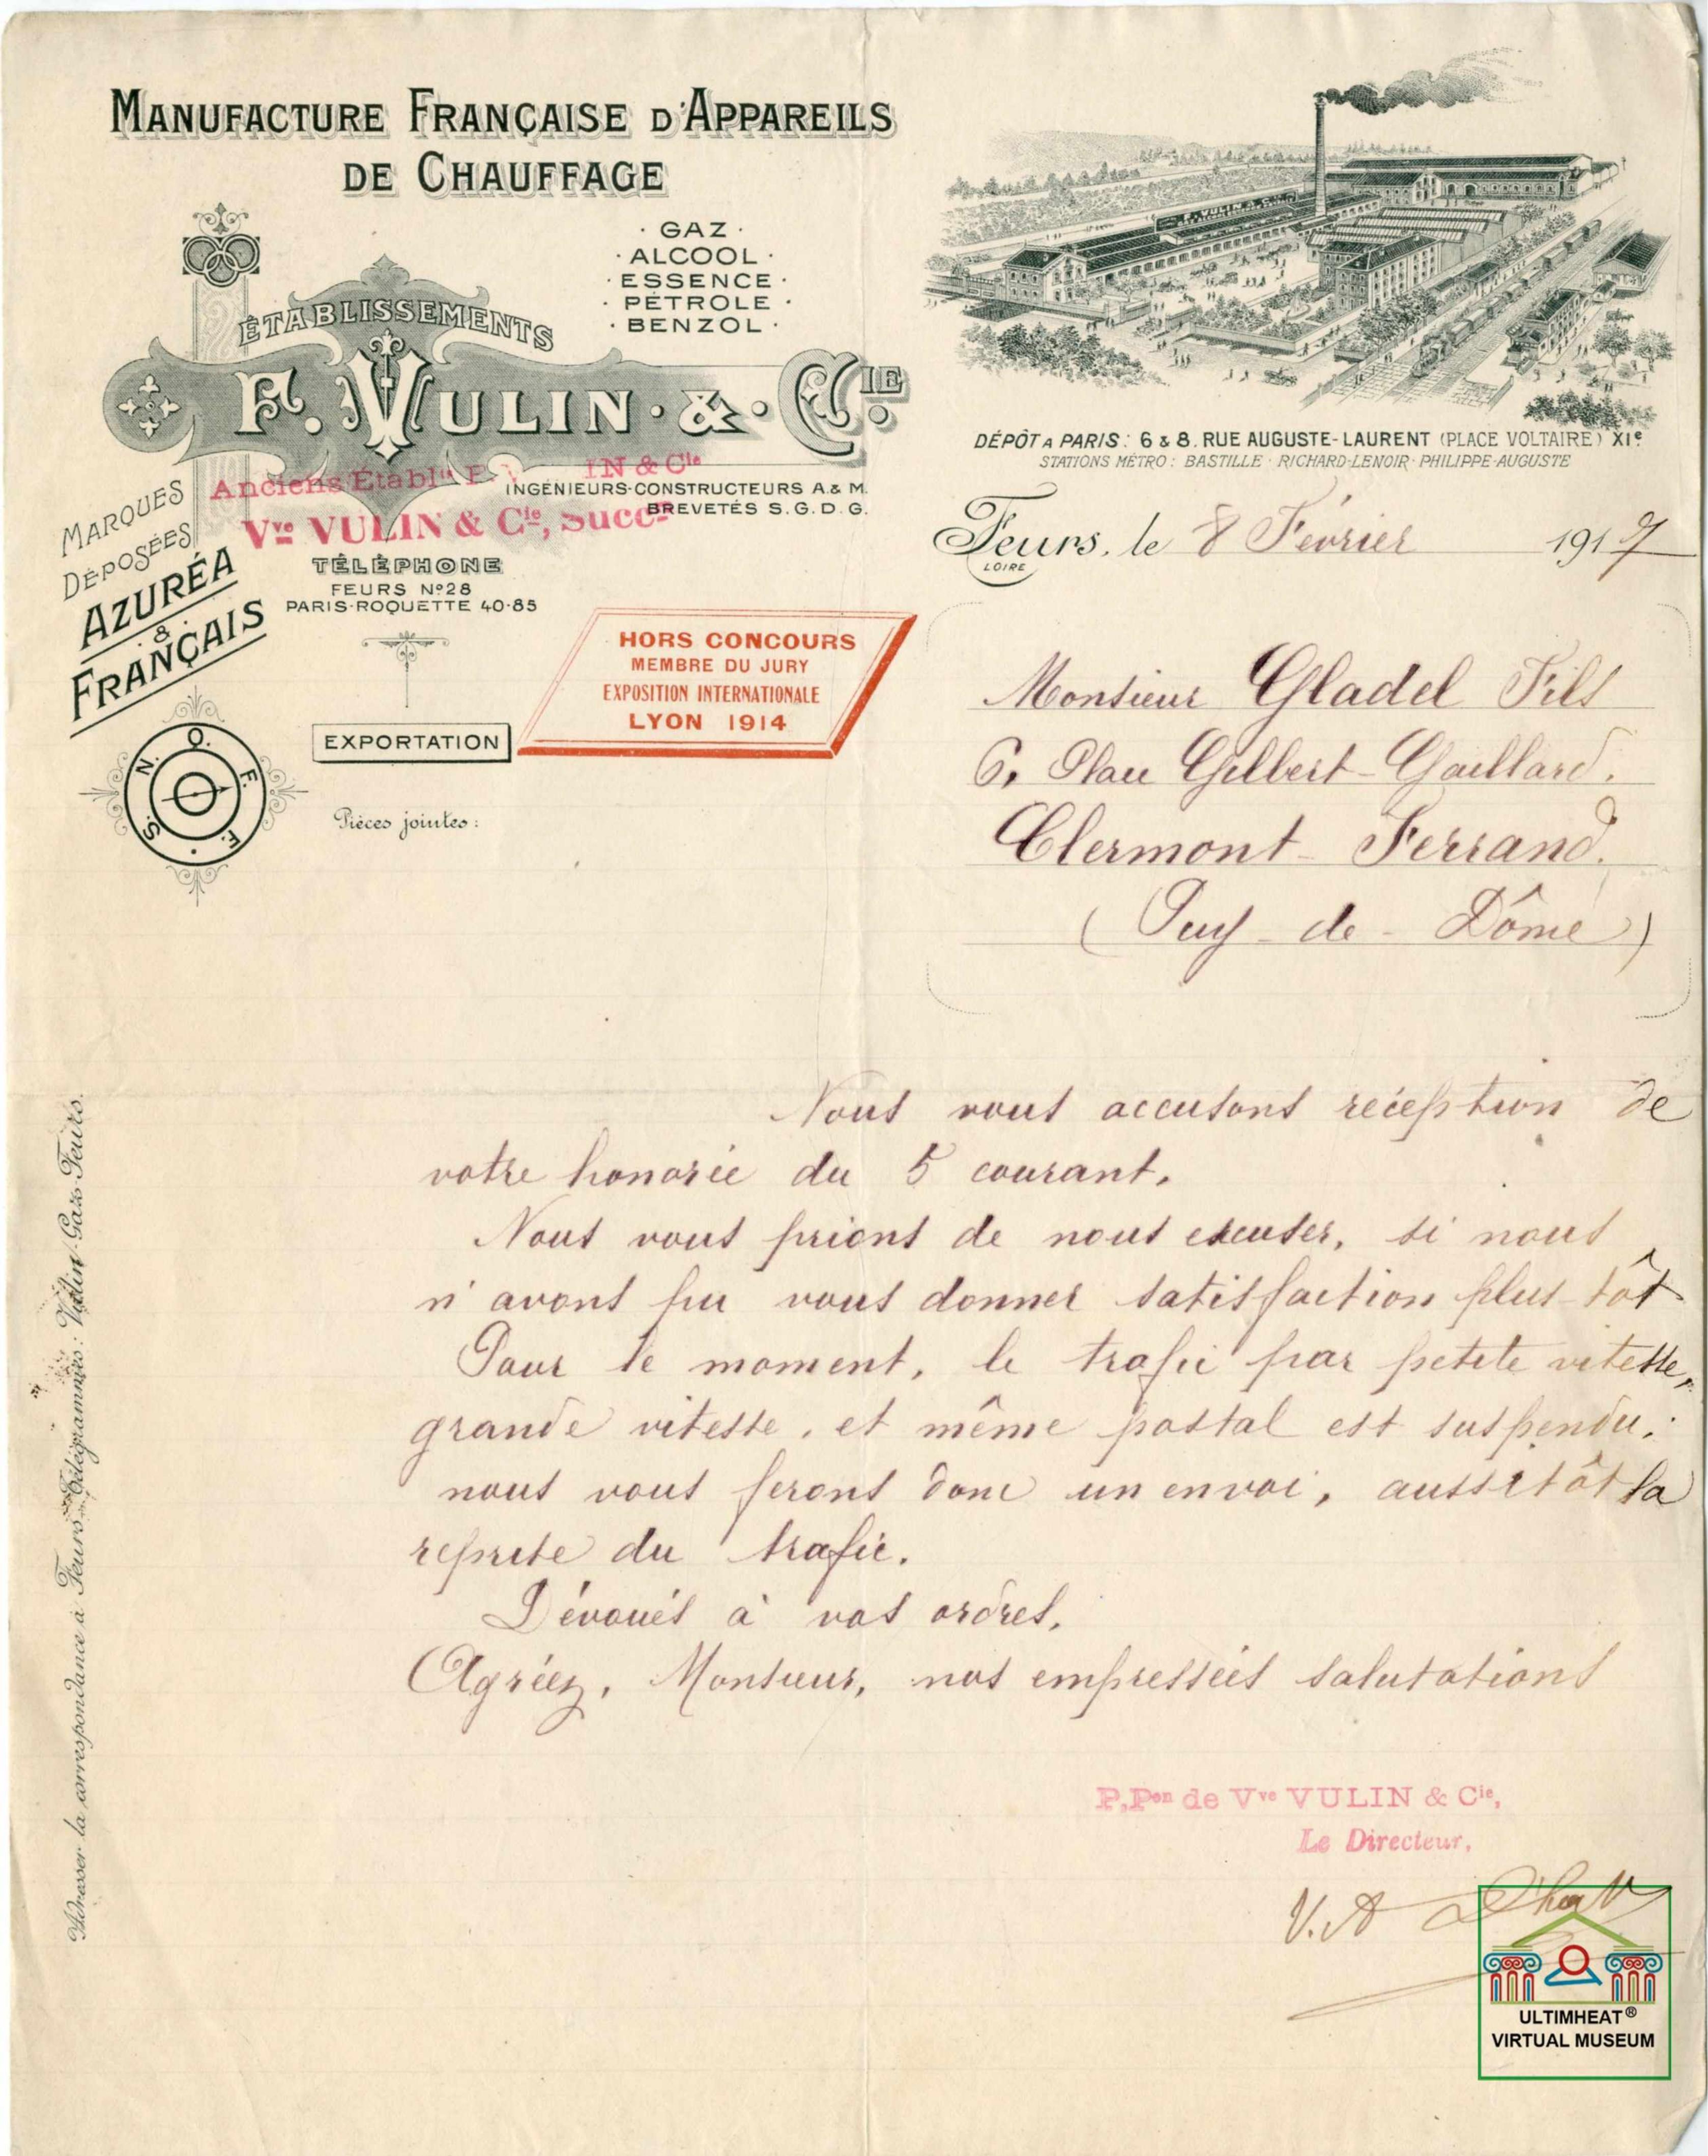 MANUFACTURE FRANÇAISE D'APPAREILS
DE CHAUFFAGE
· GAZ ·
· ALCOOL ·
· ESSENCE ·
· PÉTROLE ·
· BENZOL ·
ÉTABLISSEMENTS
F. VULIN · & · CIE
F. VULIN & Cie
Anciens Établts F. V IN & Cie
INGÉNIEURS-CONSTRUCTEURS A. & M.
Vve VULIN & Cie, Succrs
BREVETÉS S. G. D. G.
MARQUES
DÉPOSÉES
AZURÉA
&
FRANÇAIS
TÉLÉPHONE
FEURS Nº 28
PARIS-ROQUETTE 40-85
EXPORTATION
HORS CONCOURS
MEMBRE DU JURY
EXPOSITION INTERNATIONALE
LYON 1914
S. N. O. F. F.
Pièces jointes :
DÉPÔT A PARIS : 6 & 8. RUE AUGUSTE-LAURENT (PLACE VOLTAIRE) XIe
STATIONS MÉTRO : BASTILLE · RICHARD-LENOIR · PHILIPPE-AUGUSTE
Feurs, le 8 Février 1917
LOIRE
Monsieur Gladel Fils
6, Place Gilbert-Gaillard.
Clermont-Ferrand.
(Puy-de-Dôme)
Nous vous accusons réception de
votre honorée du 5 courant.
Nous vous prions de nous excuser, si nous
n'avons pu vous donner satisfaction plus tôt
Pour le moment, le trafic par petite vitesse,
grande vitesse, et même postal est suspendu;
nous vous ferons donc un envoi, aussitôt la
reprise du trafic.
Dévoués à vos ordres,
Agréez, Monsieur, nos empressées salutations
P. Pon de Vve VULIN & Cie,
Le Directeur,
V. A
Adresser la correspondance à Feurs. Télégrammes : Vulin-Gaz-Feurs.
ULTIMHEAT®
VIRTUAL MUSEUM